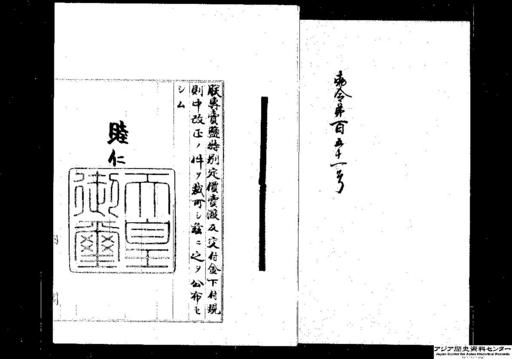 勅令第百五十一号
朕専売塩特別定価売渡及交付金下付規
則中改正ノ件ヲ裁可シ茲ニ之ヲ公布セ
シム
睦仁
天皇御璽
アジア歴史資料センター
Japan Center for Asian Historical Records